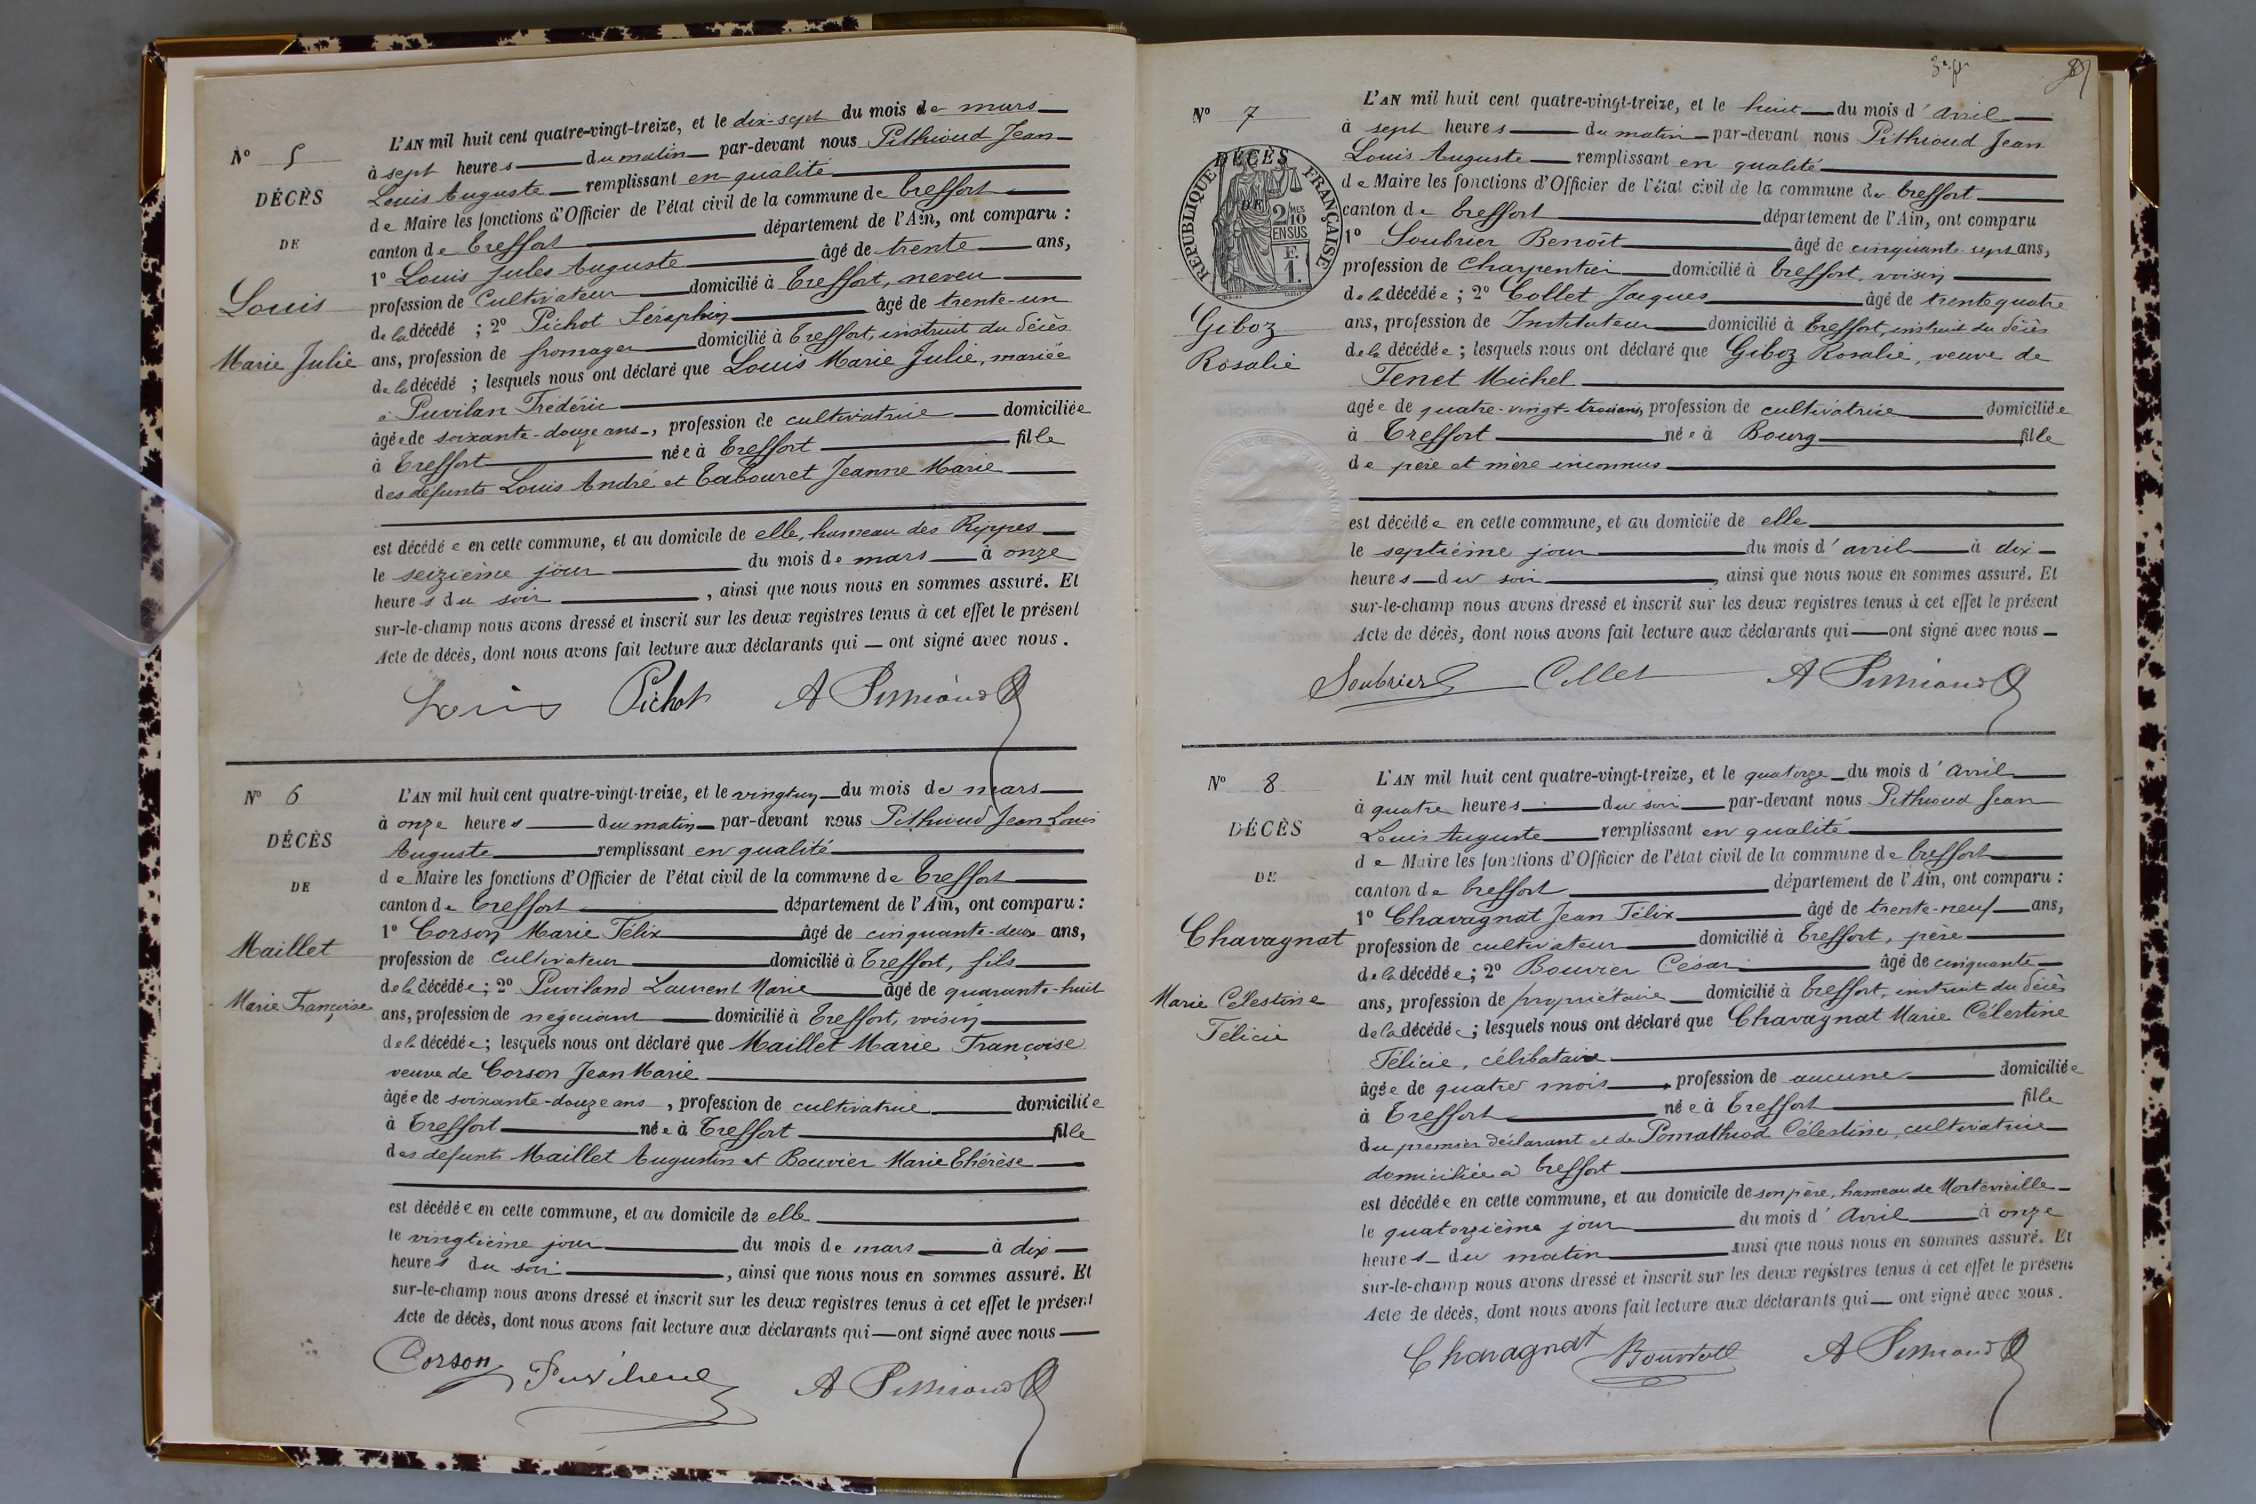 N° 5
DÉCÈS
DE
Louis
Marie Julie
L'AN mil huit cent quatre-vingt-treize, et le dix-sept du mois de mars
à sept heures du matin par-devant nous Pithioud Jean
Louis Auguste remplissant en qualité
de Maire les fonctions d'Officier de l'état civil de la commune de Treffort
canton de Treffort département de l'Ain, ont comparu :
1° Louis Jules Auguste âgé de trente ans,
profession de Cultivateur domicilié à Treffort, neveu
de la décédé ; 2° Pichot Séraphin âgé de trente-un
ans, profession de fromager domicilié à Treffort, instruit du décès
de la décédé ; lesquels nous ont déclaré que Louis Marie Julie, mariée
à Puvilan Frédéric
âgée de soixante-douze ans, profession de cultivatrice domiciliée
à Treffort née à Treffort fille
des défunts Louis André et Tabouret Jeanne Marie
est décédée en cette commune, et au domicile de elle, hameau des Rippes
le seizième jour du mois de mars à onze
heures du soir, ainsi que nous nous en sommes assuré. Et
sur-le-champ nous avons dressé et inscrit sur les deux registres tenus à cet effet le présent
Acte de décès, dont nous avons fait lecture aux déclarants qui ont signé avec nous.
Louis Pichot A Pithioud
N° 6
DÉCÈS
DE
Maillet
Marie Françoise
L'AN mil huit cent quatre-vingt-treize, et le vingt un du mois de mars
à onze heures du matin par-devant nous Pithioud Jean Louis
Auguste remplissant en qualité
de Maire les fonctions d'Officier de l'état civil de la commune de Treffort
canton de Treffort département de l'Ain, ont comparu :
1° Corson Marie Félix âgé de cinquante-deux ans,
profession de Cultivateur domicilié à Treffort, fils
de la décédée ; 2° Puviland Laurent Marie âgé de quarante-huit
ans, profession de négociant domicilié à Treffort, voisin
de la décédée ; lesquels nous ont déclaré que Maillet Marie Françoise
veuve de Corson Jean Marie
âgée de soixante-douze ans, profession de cultivatrice domiciliée
à Treffort née à Treffort fille
des défunts Maillet Augustin et Bouvier Marie Thérèse
est décédée en cette commune, et au domicile de elle
le vingtième jour du mois de mars à dix
heures du soir, ainsi que nous nous en sommes assuré. Et
sur-le-champ nous avons dressé et inscrit sur les deux registres tenus à cet effet le présent
Acte de décès, dont nous avons fait lecture aux déclarants qui ont signé avec nous
Corson Puviland A Pithioud
N° 7
RÉPUBLIQUE FRANÇAISE
2/10 MES
EN SUS
F.
1.
DÉCÈS
DE
Giboz
Rosalie
L'AN mil huit cent quatre-vingt-treize, et le huit du mois d'avril
à sept heures du matin par-devant nous Pithioud Jean
Louis Auguste remplissant en qualité
de Maire les fonctions d'Officier de l'état civil de la commune de Treffort
canton de Treffort département de l'Ain, ont comparu
1° Soubrier Benoît âgé de cinquante-sept ans,
profession de Charpentier domicilié à Treffort, voisin
de la décédée ; 2° Collet Jacques âgé de trente quatre
ans, profession de Instituteur domicilié à Treffort, instruit du décès
de la décédée ; lesquels nous ont déclaré que Giboz Rosalie, veuve de
Tenet Michel
âgée de quatre-vingt-trois ans, profession de cultivatrice domiciliée
à Treffort née à Bourg fille
de père et mère inconnus
est décédée en cette commune, et au domicile de elle
le septième jour du mois d'avril à dix
heures du soir, ainsi que nous nous en sommes assuré. Et
sur-le-champ nous avons dressé et inscrit sur les deux registres tenus à cet effet le présent
Acte de décès, dont nous avons fait lecture aux déclarants qui ont signé avec nous
Soubrier Collet A Pithioud
N° 8
DÉCÈS
DE
Chavagnat
Marie Célestine
Félicie
L'AN mil huit cent quatre-vingt-treize, et le quatorze du mois d'avril
à quatre heures du soir par-devant nous Pithioud Jean
Louis Auguste remplissant en qualité
de Maire les fonctions d'Officier de l'état civil de la commune de Treffort
canton de Treffort département de l'Ain, ont comparu :
1° Chavagnat Jean Félix âgé de trente-neuf ans,
profession de cultivateur domicilié à Treffort, père
de la décédée ; 2° Bouvier César âgé de cinquante
ans, profession de propriétaire domicilié à Treffort, instruit du décès
de la décédée ; lesquels nous ont déclaré que Chavagnat Marie Célestine
Félicie, célibataire
âgée de quatre mois, profession de aucune domiciliée
à Treffort née à Treffort fille
du premier déclarant et de Pomathiod Célestine, cultivatrice
domiciliée à Treffort
est décédée en cette commune, et au domicile de son père, hameau de Mortevieille
le quatorzième jour du mois d'Avril à onze
heures du matin ainsi que nous nous en sommes assuré. Et
sur-le-champ nous avons dressé et inscrit sur les deux registres tenus à cet effet le présent
Acte de décès, dont nous avons fait lecture aux déclarants qui ont signé avec nous.
Chavagnat A Pithioud